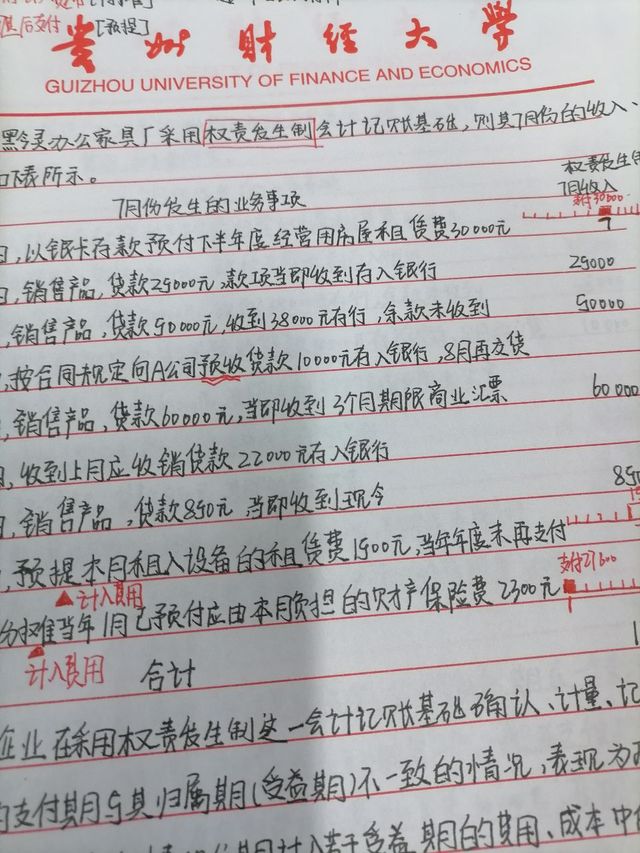 退后支付 [预提]
贵州财经大学
GUIZHOU UNIVERSITY OF FINANCE AND ECONOMICS
黔灵办公家具厂采用权责发生制会计记账基础,则其7月份的收入、
如下表所示。
权责发生制
7月份发生的业务事项
7月收入
支付30000
7
日,以银卡存款预付下半年度经营用房屋租赁费30000元
日,销售产品,贷款25000元,款项当即收到存入银行 25000
,销售产品,贷款50000元,收到38000元存行,余款未收到 50000
,按合同规定向A公司预收货款10000元存入银行,8月再交货
,销售产品,贷款60000元,当即收到3个月期限商业汇票 60000
,收到上月应收销货款22000元存入银行
日,销售产品,贷款850元,当即收到现金 850
,预提本月租入设备的租赁费1500元,当年年度末再支付
计入费用
分摊当年1月已预付应由本月负担的财产保险费2300元
计入费用
合计
企业在采用权责发生制这一会计记账基础确认、计量、记
的支付期与其归属期(受益期)不一致的情况,表现为
计入若干受益期的费用、成本中